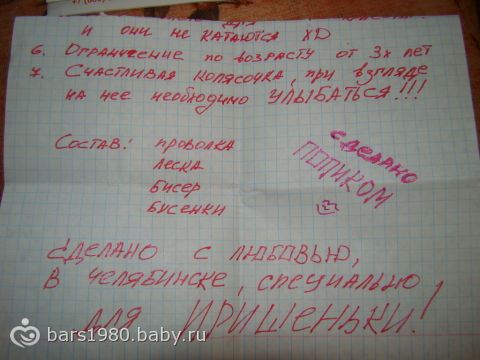 для
и они не катаются XD
6. Ограничение по возрасту от 3х лет
7. Счастливая колясочка, при взгляде
на нее необходимо улыбаться!!!
Состав: проволка
леска
бисер
бусенки
сделано
ПОПИКОМ
Сделано с любовью,
в Челябинске, специально
для Иришеньки!
bars1980.baby.ru